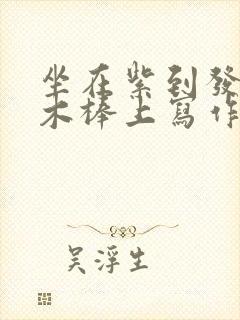 坐在紫到發
木棒上寫作
吳浮生